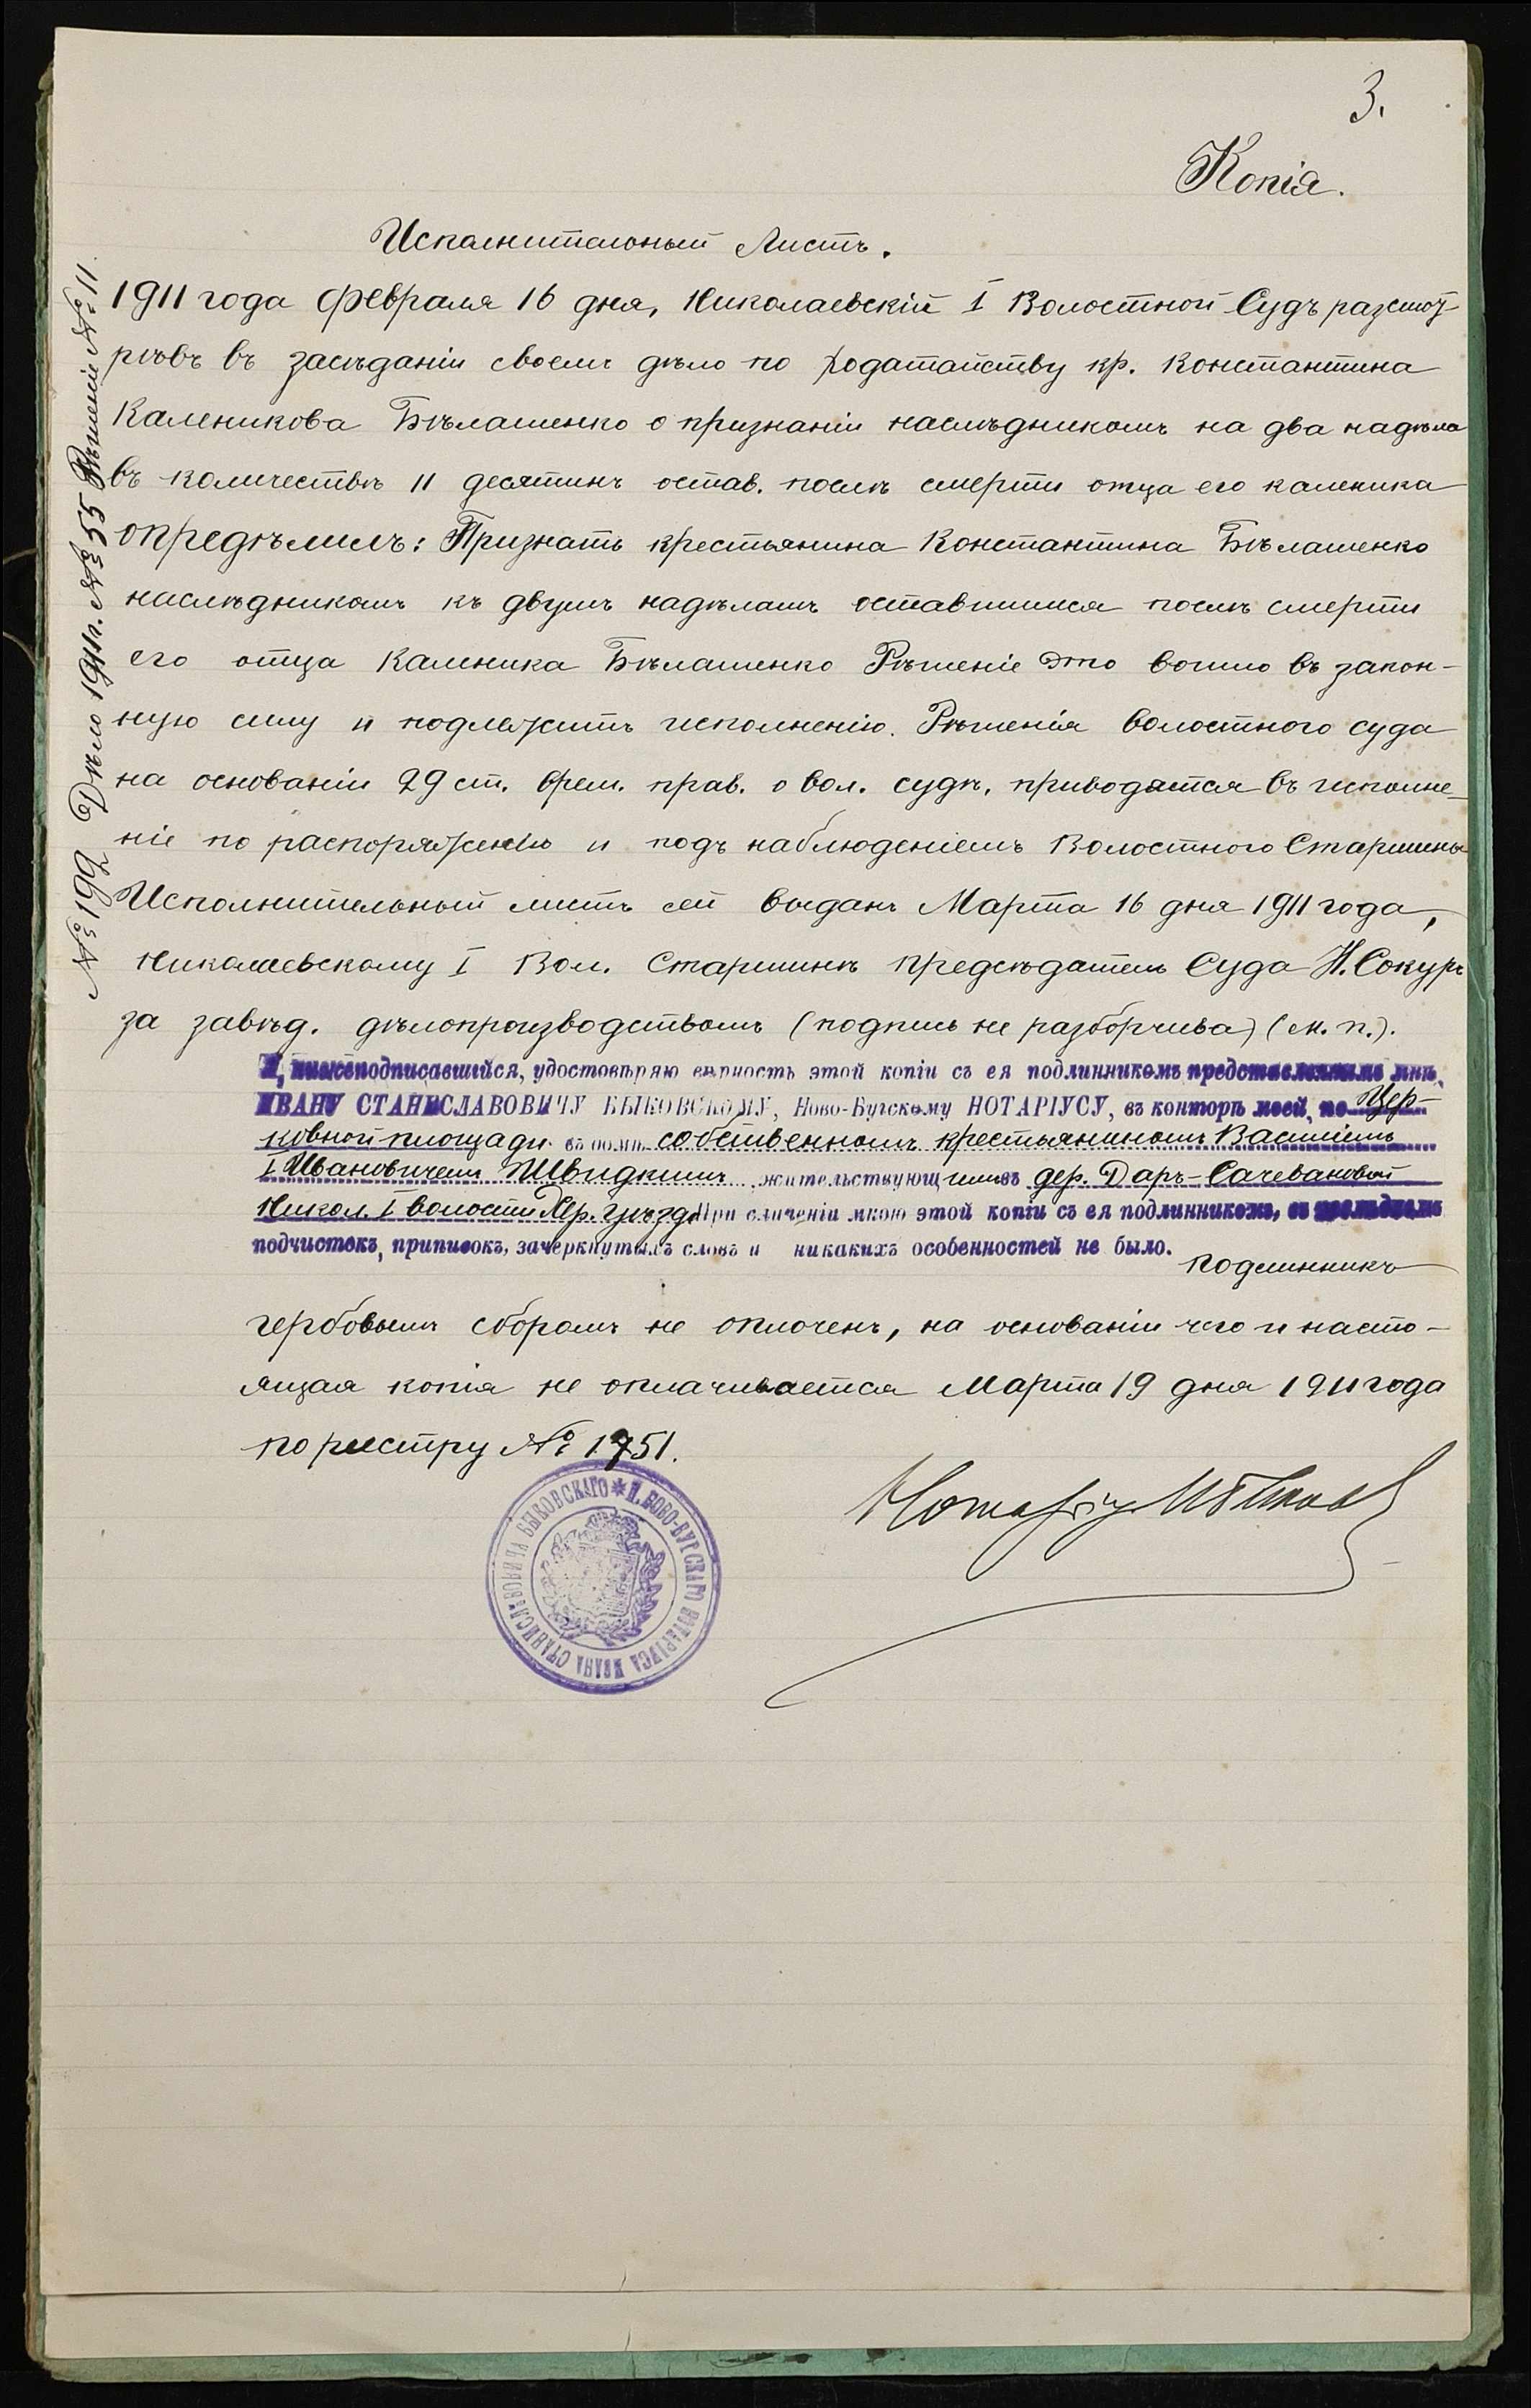 3.
Копія.
Исполнительный Листъ.
№ 199 Дѣло 1911г. № 55 Рѣшеніе № 11.
1911 года февраля 16 дня, Николаевскій I Волостной Судъ разсмот-
рѣвъ въ засѣданіи своемъ дѣло по ходатайству кр. Константина
Каленикова Бѣлашенко о признаніи наслѣдникомъ на два надѣла
въ количествѣ 11 десятинъ остав. послѣ смерти отца его каленика
опредѣлилъ: Признать крестьянина Константина Бѣлашенко
наслѣдникомъ къ двумъ надѣламъ оставшимся послѣ смерти
его отца Каленика Бѣлашенко Рѣшеніе это вошло въ закон-
ную силу и подлежитъ исполненію. Рѣшенія волостного суда
на основаніи 29 ст. врем. прав. о вол. судѣ, приводятся въ исполне-
ніе по распоряженію и подъ наблюденіемъ Волостного Старшины
Исполнительный листъ сей выданъ Марта 16 дня 1911 года,
Николаевскому I Вол. Старшинѣ предсѣдатель Суда Н. Сокуръ
за завѣд. дѣлопроизводствомъ (подпись не разборчива) (м. п.).
Я, нижеподписавшійся, удостовѣряю вѣрность этой копіи съ ея подлинникомъ представленнымъ мнѣ,
ИВАНУ СТАНИСЛАВОВИЧУ БЫКОВСКОМУ, Ново-Бугскому НОТАРІУСУ, въ конторѣ моей, по Цер-
ковной площади въ домѣ собственномъ крестьяниномъ Василіемъ
Ивановичемъ Швидкимъ, жительствующимъ въ дер. Даръ-
Никол. I волости Хер. уѣзда При сличеніи мною этой копіи съ ея подлинникомъ, въ послѣднемъ
подчистокъ, приписокъ, зачеркнутыхъ словъ и никакихъ особенностей не было.
Подлинникъ
гербовымъ сборомъ не оплоченъ, на основаніи чего и насто-
ящая копія не оплачивается Марта 19 дня 1911 года
по реестру № 1751.
Нотаріус
* П. НОВО-БУГСКАГО НОТАРІУСА ИВАНА СТАНИСЛАВОВИЧА БЫКОВСКАГО